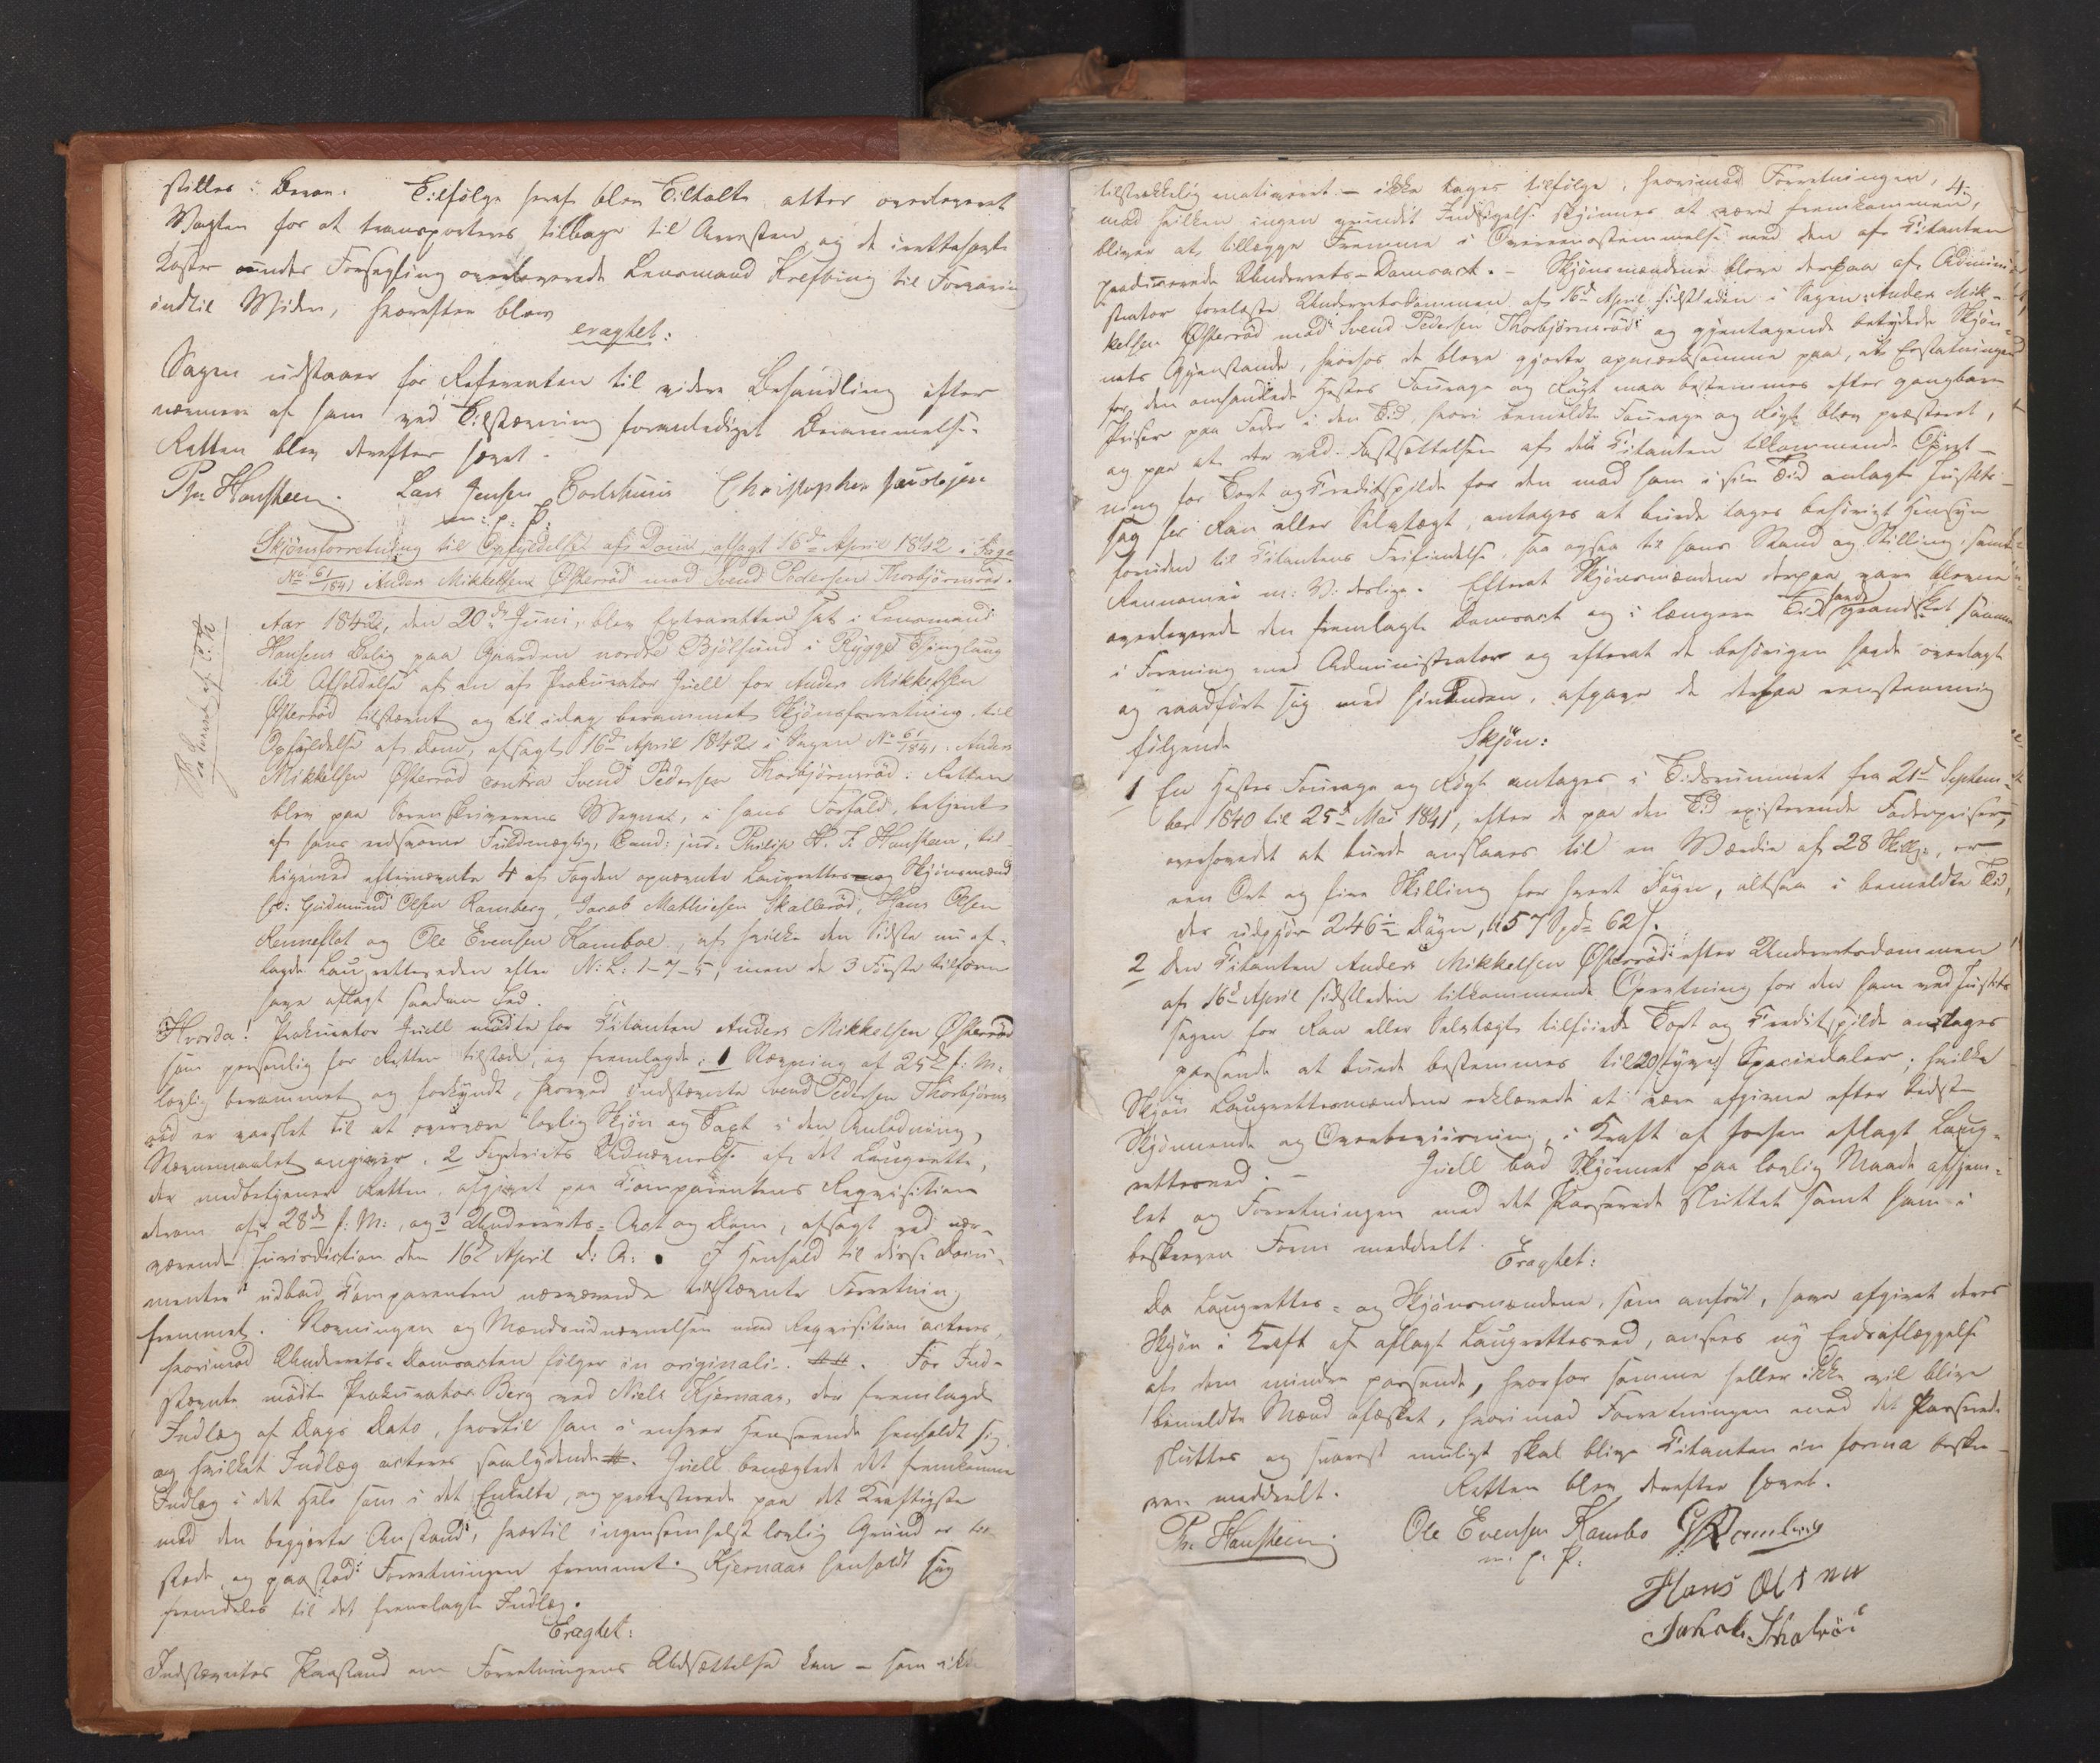 stilles i Bero. Tilfølge heraf blev Tiltalte atter overleveret
Vagten for at transporteres tilbage til Arresten og de irettelagte
Koster under Forsegling overleverede Lensmand Krefting til Forvaring
indtil Videre, hvorefter blev
eragtet:
Sagen udstaaer for Referenten til videre Behandling efter
nærmere af ham ved Tilstævning foranlediget Berammelse.
Retten blev derefter hævet.
Ph. Hansteen. Lars Jensen Christopher
m: p: P:
Skjønsforretning til Opfyldelse af Dom, afsagt 16de April 1842 i Sag
No 61/1841 Anders Mikkelsen Østerrød mod Svend Pedersen Thorbjørnrød.
Aar 1842, den 20de Juni, blev Extraretten sat i Lensmand
Hansens Bolig paa Gaarden nordre Bjølsund i Rygge Thinglaug
til Afholdelse af en af Prokurator Juell for Anders Mikkelsen
Østerrød tilstævnt og til idag berammet Skjønsforretning til
Opfyldelse af Dom, afsagt 16de April 1842 i Sagen No 61/1841. Anders
Mikkelsen Østerrød contra Svend Pedersen Thorbjørnrød. Retten
blev paa Sorenskriverens Vegne, i hans Forfald, betjent
af hans edsvorne Fuldmægtig, Cand: jur. Philip H. F. Hansteen, til-
ligemed efternævnte 4 af Fogden opnævnte Laugrettes og Skjønsmænd
Gudmund Olsen Ramberg, Jacob Mathisen Skallerød, Hans Olsen
Renneflot og Ole Evensen Kamboe, af hvilke den Sidste nu af-
lagde Laugretteseden efter N: L: 1-7-5, men de 3 Første tilforn
have aflagt saadan Ed.
Hvorda! Prokurator Juell mødte for Citanten Anders Mikkelsen Østerrød
som personlig for Retten tilstede, og fremlagde: 1 Stævning af 25de f: M:
lovlig berammet og forkyndt, hvorved Indstævnte Svend Pedersen Thorbjørns-
rød er varslet til at overvære lovlig Skjøn og Taxt i den Anledning,
Stævnemaalet angiver. 2 Fogderiets Udnævnelse af det Laugrette,
der medbetjener Retten, afgivet paa Comparentens Reqvisition
derom af 28de f: M:, og 3 Underrets-Act og Dom, afsagt ved nær-
værende Jurisdiction den 16de April d: A: I Henhold til disse Docu-
menter udbad Comparenten nærværende tilstævnte Forretning
fremmet. Stævningen og Mandsudnævnelsen med Reqvisition acteres,
hvorimod Underrets-Domsacten følger in originali. For Ind-
stævnte mødte Prokurator Berg ved Niels Kjernaas, der fremlagde
Indlæg af Dags Dato, hvortil han i enhver Henseende henholdt sig,
og hvilket Indlæg acteres saalydende. Juell benægtede det fremkomne
Indlæg i det Hele som i det Enkelte, og protesterede paa det Kraftigste
mod den begjærte Anstand, hvortil ingensomhelst lovlig Grund er til
stede, og paastod Forretningen fremmet. Kjernaas henholdt sig
fremdeles til det fremlagte Indlæg.
Eragtet:
Indstævntes Paastand om Forretningens Udsættelse kan – som ikke
4.
tilstrækkelig motiveret – ikke tages tilfølge, hvorimod Forretningen,
mod hvilken ingen grundet Indsigelse skjønnes at være fremkommen,
bliver at tillægge Fremme i Overensstemmelse med den af Citanten
producerede Underrets-Domsact. – Skjønsmændene bleve derpaa af Admini-
strator forelæste Underretsdommen af 16de April sidstleden i Sagen: Anders Mik-
kelsen Østerrød mod Svend Pedersen Thorbjørnsrød og gjentagende betydede Skjøn-
nets Gjenstande, hvorhos de bleve gjorte opmærksomme paa, at Erstatningen
for den omhandlede Hestes Fourage og Røgt maa bestemmes efter gangbare
Priser paa Foder i den Tid, hvori bemeldte Fourage og Røgt blev præsteret,
og paa at der ved Fastsættelsen af den Citanten tilkommende Opret-
ning for Tort og Creditspilde for den mod ham i sin Tid anlagte Justits-
sag for Ran eller Selvtægt, antages at burde tages behørigt Hensyn
foruden til Citantens Frifindelse, saa ogsaa til hans Stand og Stilling, samt
Renommée m: V: deslige. Efterat Skjønsmændene derpaa vare blevne
overleverede den fremlagte Domsact og i længere Tid havde grandsket samme
i Forening med Administrator og efterat de behørigen havde overlagt
og raadført sig med hinanden, afgave de derpaa eenstemmig
følgende Skjøn:
1 En Hestes Fourage og Røgt antages i Tidsrummet fra 21de Septem-
ber 1840 til 25de Mai 1841, efter de paa den Tid existerende Foderpriser,
overhovedet at burde anslaaes til en Værdie af 28 Skill:, er
een Ort og fire Skilling for hvert Døgn, altsaa i bemeldte Tid,
der udgjør 246 Døgn, til 57 Spd. 62 s.
2 Den Citanten Anders Mikkelsen Østerrød efter Underretsdommen
af 16de April sidstleden tilkommende Opretning for den ham ved Justits-
sagen for Ran eller Selvtægt tilføiede Tort og Creditspilde antages
passende at burde bestemmes til 20 /tyve/ Speciedaler; hvilke
Skjøn Laugrettesmændene erklærede at være afgivne efter bedste
Skjønnende og Overbeviisning, i Kraft af forhen aflagt Laug-
rettesed. – Juell bad Skjønnet paa lovlig Maade afhjem-
let og Forretningen med det Passerede sluttet samt ham i
beskreven Form meddeelt.
Eragtet:
Da Laugrettes- og Skjønsmændene, som anført, have afgivet deres
Skjøn i Kraft af aflagt Laugrettesed, ansees ny Edsaflæggelse
af dem mindre passende, hvorfor samme heller ikke vil blive
bemeldte Mænd afæsket, hvorimod Forretningen med det Passerede
sluttes og snarest muligt skal blive Citanten in forma beskre-
ven meddeelt. Retten blev derefter hævet.
Ph. Hansteen. Ole Evensen Kambo G. Ramberg
m. p. P.
Hans Olsen
Jakob